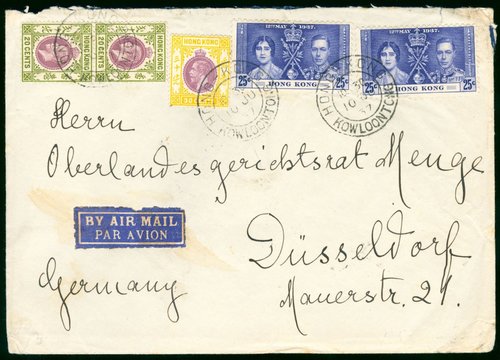 HONG KONG
20 CENTS
HONG KONG
20 CENTS
HONG KONG
12TH MAY 1937.
25¢ HONG KONG 25¢
12TH MAY 1937.
25¢ HONG KONG 25¢
KOWLOON TONG
HONG KONG
KOWLOON TONG
HONG KONG
Herrn
Oberlandesgerichtsrat Menge
BY AIR MAIL
PAR AVION
Düsseldorf
Germany
Mauerstr. 21.